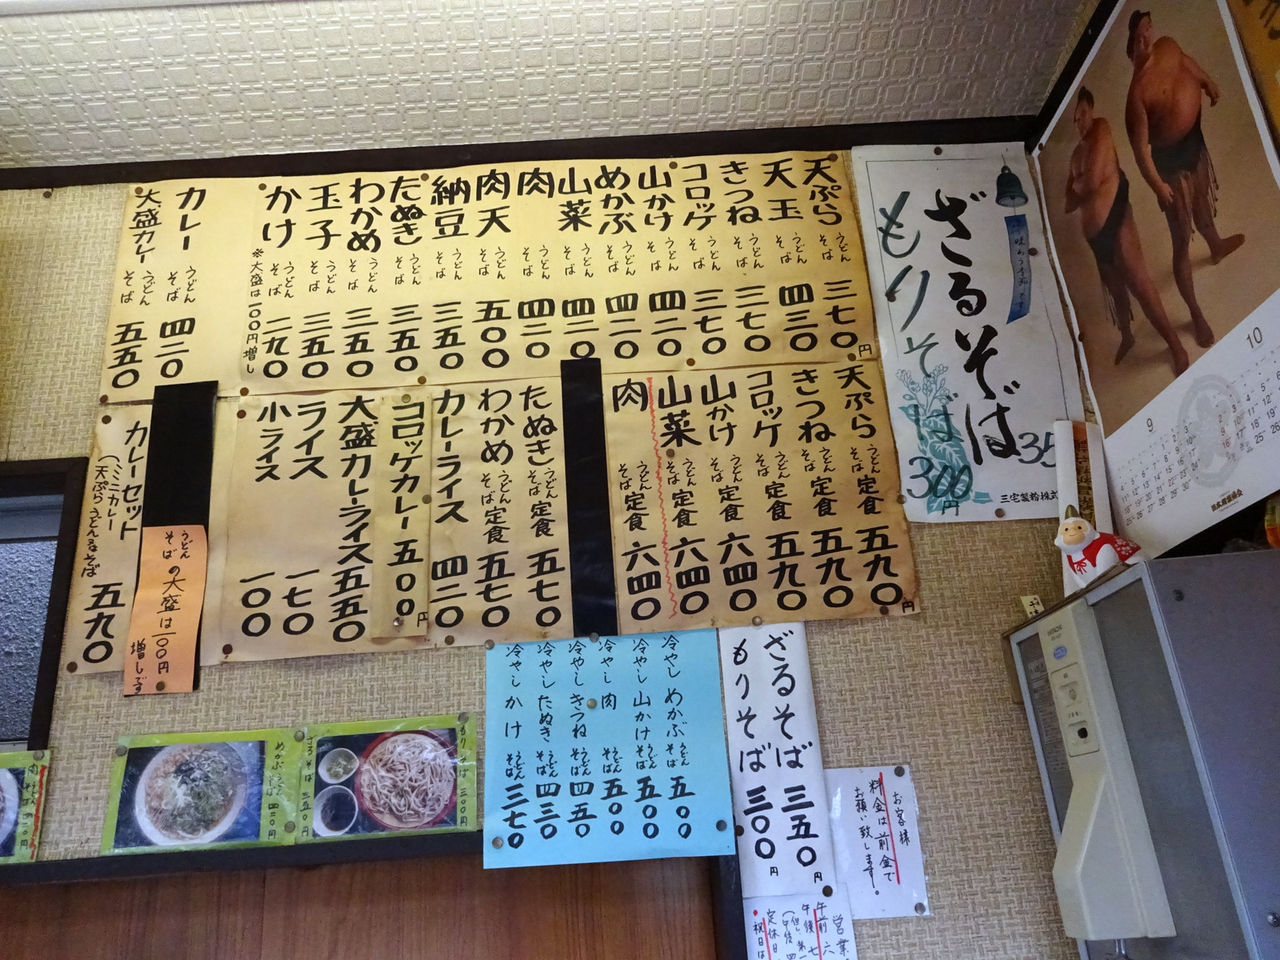 天ぷら うどん そば 三七〇円
天玉 うどん そば 四三〇
きつね うどん そば 三七〇
コロッケ うどん そば 三七〇
山かけ うどん そば 四二〇
めかぶ うどん そば 四二〇
山菜 うどん そば 四二〇
肉 うどん そば 四二〇
肉天 うどん そば 五〇〇
納豆 うどん そば 三五〇
たぬき うどん そば 三五〇
わかめ うどん そば 三五〇
玉子 うどん そば 三五〇
かけ うどん そば 二九〇
※大盛は一〇〇円増し
カレー うどん そば 四二〇
大盛カレー うどん そば 五五〇
天ぷら うどん そば 定食 五九〇円
きつね うどん そば 定食 五九〇
コロッケ うどん そば 定食 五九〇
山かけ うどん そば 定食 六四〇
山菜 うどん そば 定食 六四〇
肉 うどん そば 定食 六四〇
たぬき うどん そば 定食 五七〇
わかめ うどん そば 定食 五七〇
カレーライス 四二〇
コロッケカレー 五〇〇円
大盛カレーライス 五五〇
ライス 一七〇
小ライス 一〇〇
うどん そば の大盛は一〇〇円
増しです
カレーセット 五九〇
(ミニカレー
天ぷらうどん又はそば
ざるそば 35
もりそば 300円
三宅製粉株式
冷やし めかぶ うどん そば 五〇〇
冷やし 山かけ うどん そば 五〇〇
冷やし 肉 うどん そば 五〇〇
冷やし きつね うどん そば 四五〇
冷やし たぬき うどん そば 四三〇
冷やし かけ うどん そば 三七〇
ざるそば 三五〇円
もりそば 三〇〇円
お客様
料金は前金で
お願い致します。
営業
午前 六
午後 七
定休日
祝日は
もりそば 三〇〇円
ざるそば 三五〇円
めかぶ うどん そば 四二〇円
肉 うどん そば
9
10